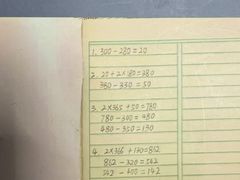 1. 300-280=20
2. 20+2×180=380
380-330=50
3. 2×365+50=780
780-300=480
480-350=130
4. 2×366+130=862
862-320=542
542-400=142